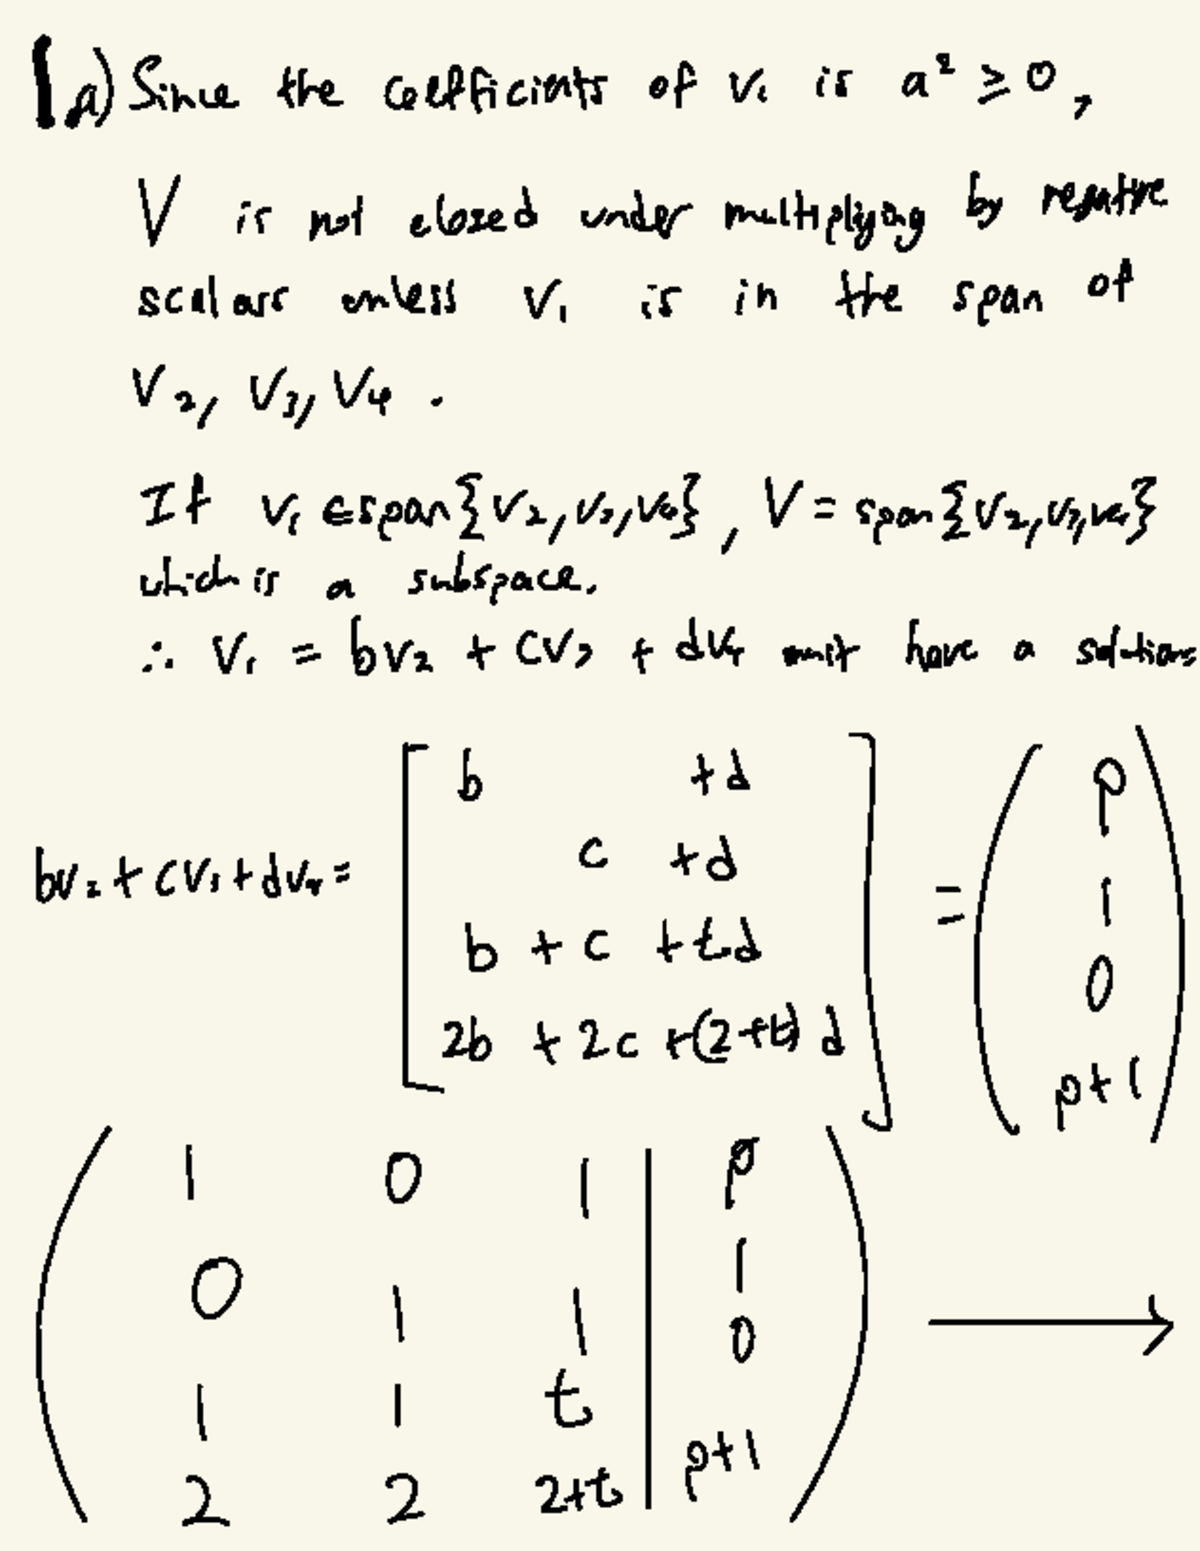 1a) Since the coefficients of v₁ is a² ≥ 0,
V is not closed under multiplying by negative
scalars unless v₁ is in the span of
v₂, v₃, v₄.
If v₁ ∈ span{v₂, v₃, v₄}, V = span{v₂, v₃, v₄}
which is a subspace.
∴ v₁ = bv₂ + cv₃ + dv₄ must have a solutions
b +d p
c +d 1
bv₂ + cv₃ + dv₄ = =
b + c + td 0
2b + 2c + (2+t) d p+1
1 0 1 | p
0 1 1 | 1
1 1 t | 0
2 2 2+t | p+1 →